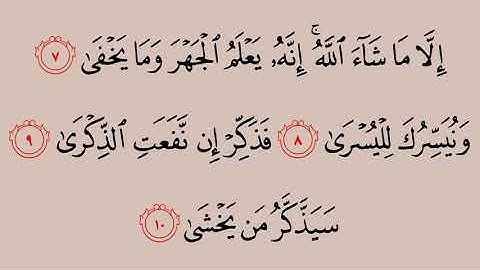 إِلَّا مَا شَآءَ ٱللَّهُۚ إِنَّهُۥ يَعْلَمُ ٱلْجَهْرَ وَمَا يَخْفَىٰ ٧
وَنُيَسِّرُكَ لِلْيُسْرَىٰ ٨ فَذَكِّرْ إِن نَّفَعَتِ ٱلذِّكْرَىٰ ٩
سَيَذَّكَّرُ مَن يَخْشَىٰ ١٠